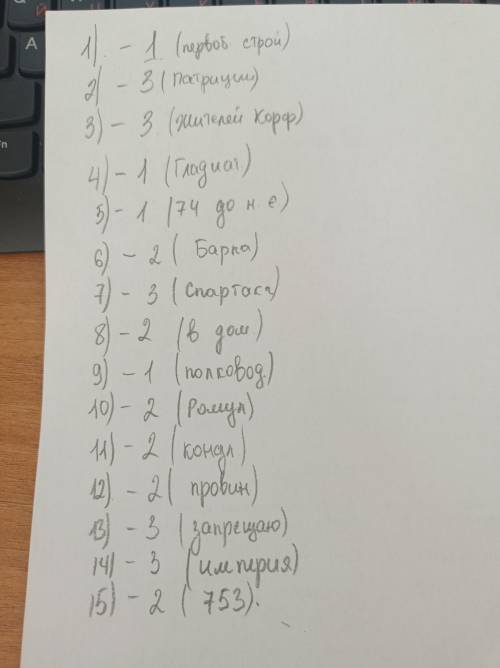 1) - 1 (первоб строй)
2) - 3 (Патриции)
3) - 3 (жителей Карф)
4) - 1 (Гладиат.)
5) - 1 (74 до н.е)
6) - 2 ( Барка)
7) - 3 (Спартака)
8) - 2 (в дом)
9) - 1 (полковод.)
10) - 2 (Ромул)
11) - 2 (
12) - 2 ( провин)
13) - 3 (запрещаю)
14) - 3 (империя)
15) - 2 ( 753).